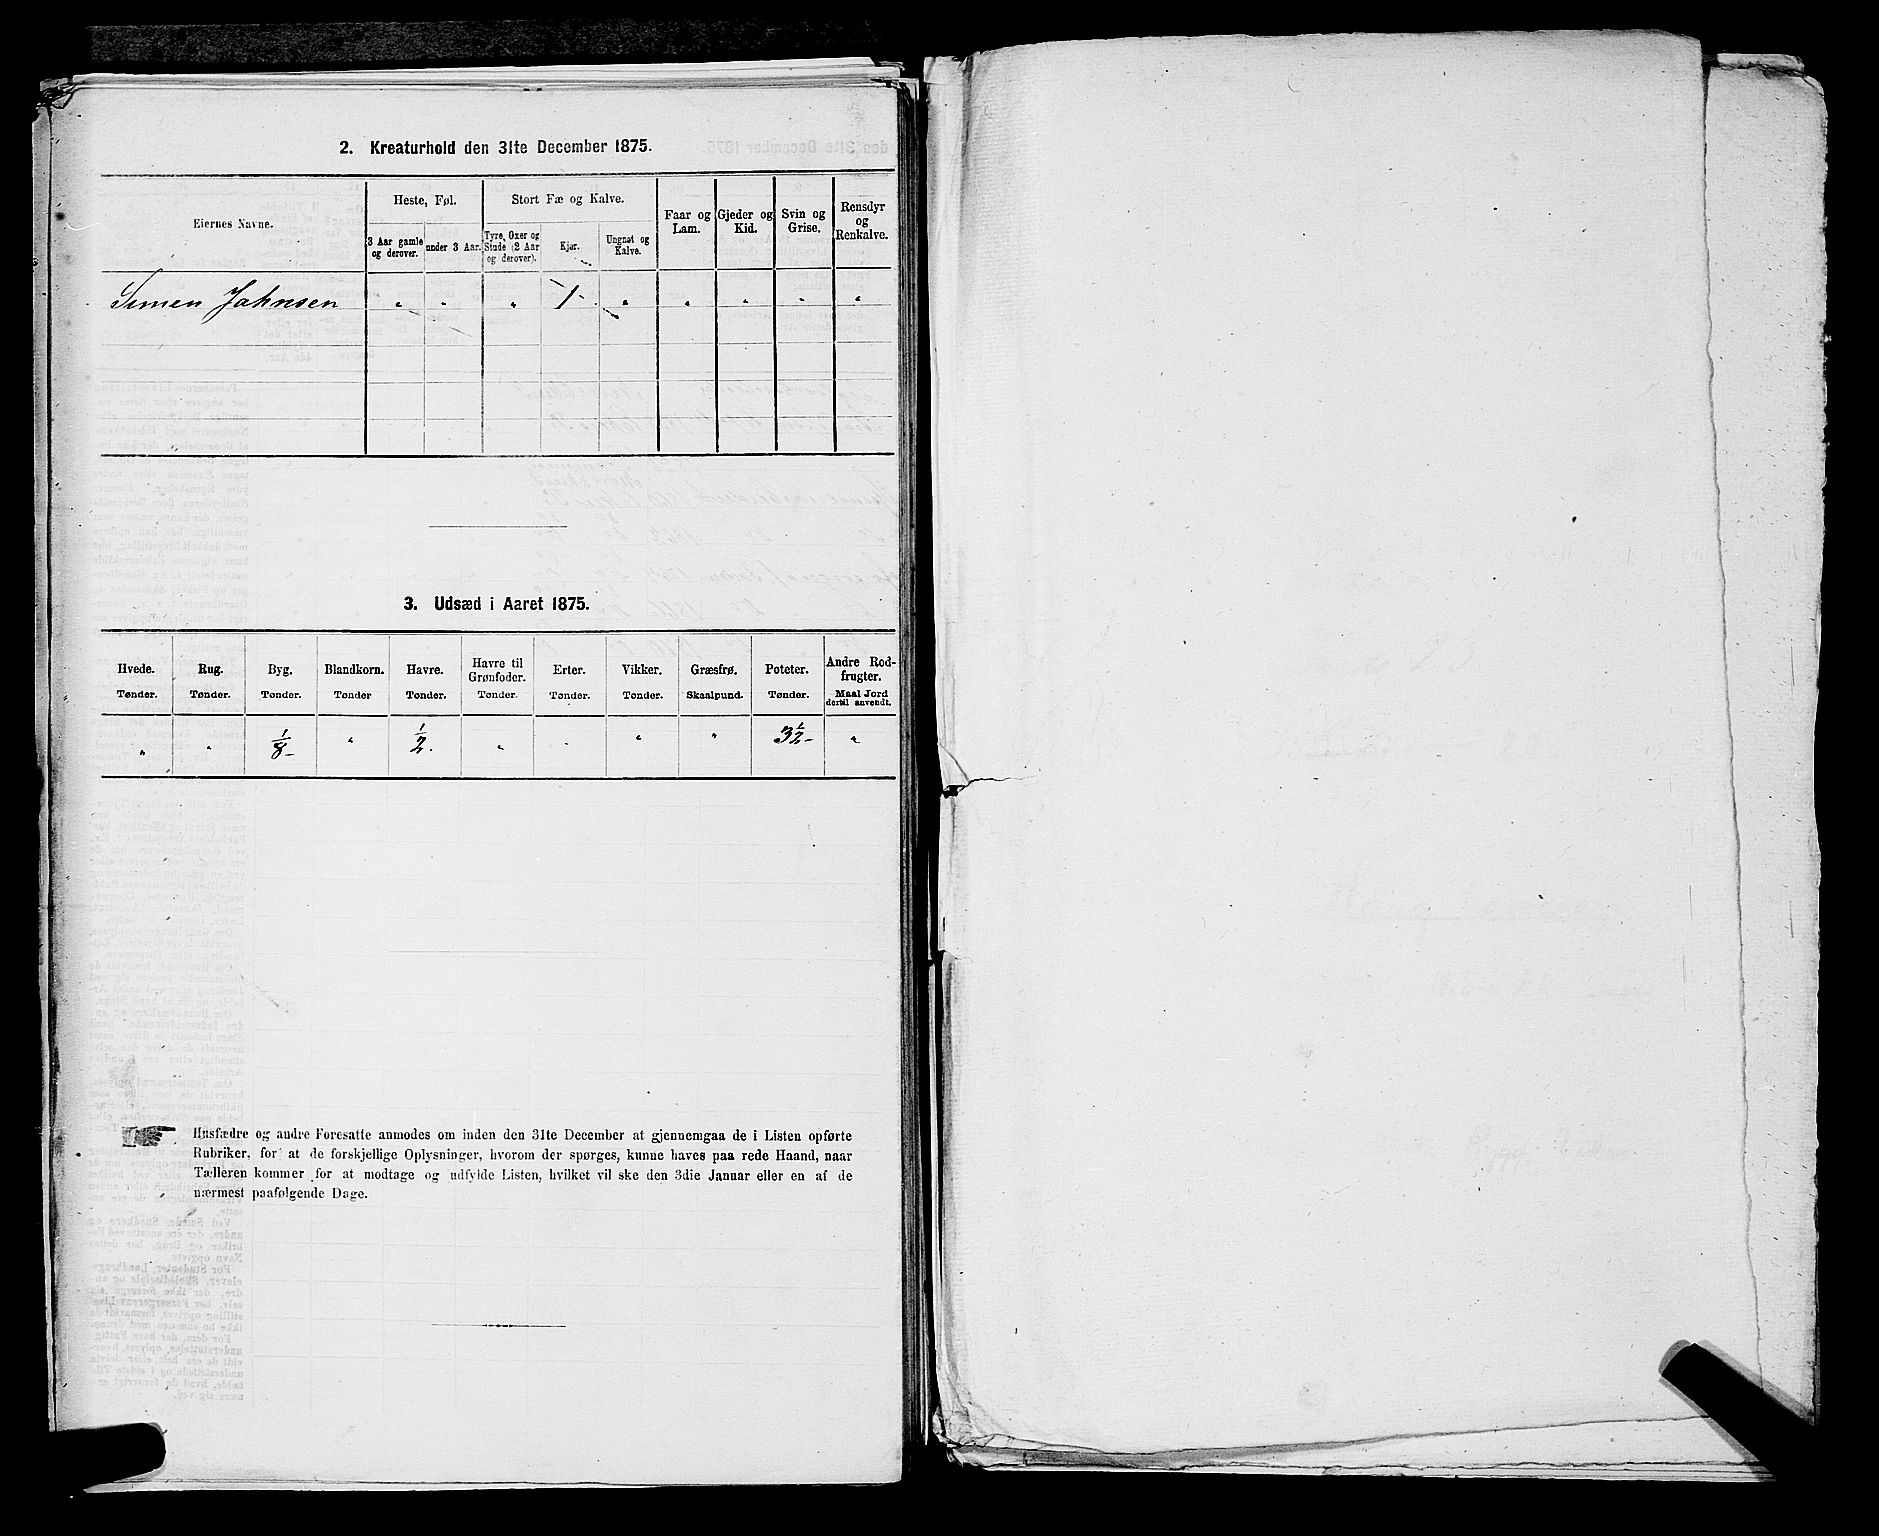 2. Kreaturhold den 31te December 1875.
Eiernes Navne.
Heste, Føl.
Stort Fæ og Kalve.
Faar og
Lam.
Gjeder og
Kid.
Svin og
Grise.
Rensdyr
og
Renkalve.
3 Aar gamle
og derover.
under 3 Aar.
Tyre, Oxer og
Stude (2 Aar
og derover).
Kjør.
Ungnøt og
Kalve.
Simen Johnsen " " " 1 " " " " "
3. Udsæd i Aaret 1875.
Hvede. Rug. Byg. Blandkorn. Havre. Havre til
Grønfoder. Erter. Vikker. Græsfrø. Poteter. Andre Rod-
frugter.
Tønder. Tønder. Tønder. Tønder Tønder. Tønder. Tønder. Tønder. Skaalpund. Tønder. Maal Jord
dertil anvendt.
" " 1/8 " 1/2 " " " " 3 1/2 "
Husfædre og andre Foresatte anmodes om inden den 31te December at gjennemgaa de i Listen opførte
Rubriker, for at de forskjellige Oplysninger, hvorom der spørges, kunne haves paa rede Haand, naar
Tælleren kommer for at modtage og udfylde Listen, hvilket vil ske den 3die Januar eller en af de
nærmest paafølgende Dage.